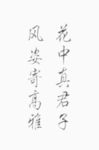 花中真君子
风姿寄高雅